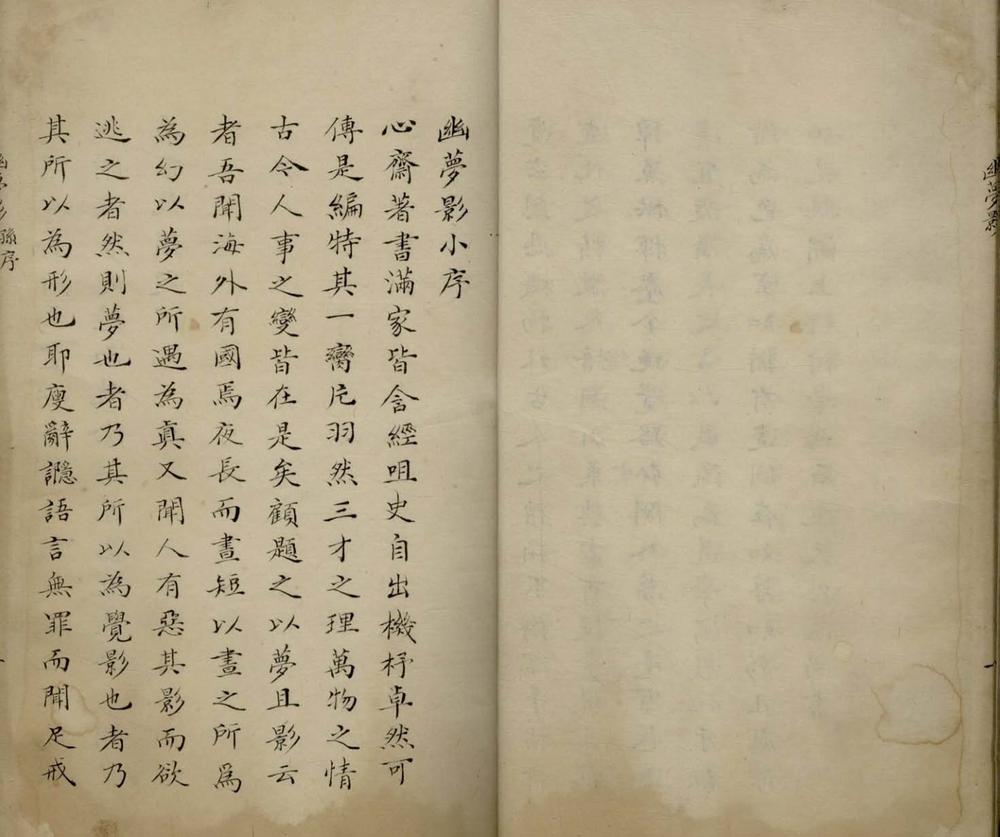 幽夢影
幽夢影小序
心齋著書滿家皆含經咀史自出機杼卓然可
傳是編特其一臠片羽然三才之理萬物之情
古今人事之變皆在是矣顧題之以夢且影云
者吾聞海外有國焉夜長而晝短以晝之所爲
為幻以夢之所遇為真又聞人有惡其影而欲
逃之者然則夢也者乃其所以為覺影也者乃
其所以為形也耶廋辭讔語言無罪而聞足戒
孫序